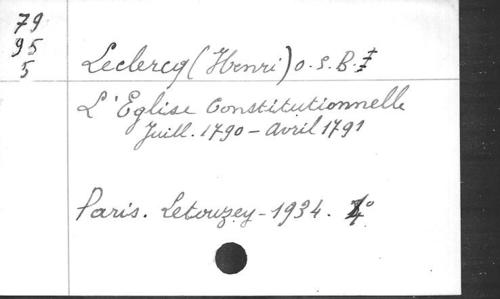 79
95
5
Leclercq (Henri) O.S.B.
L'Eglise Constitutionnelle
Juill. 1790 - Avril 1791
Paris. Letouzey - 1934. 4°